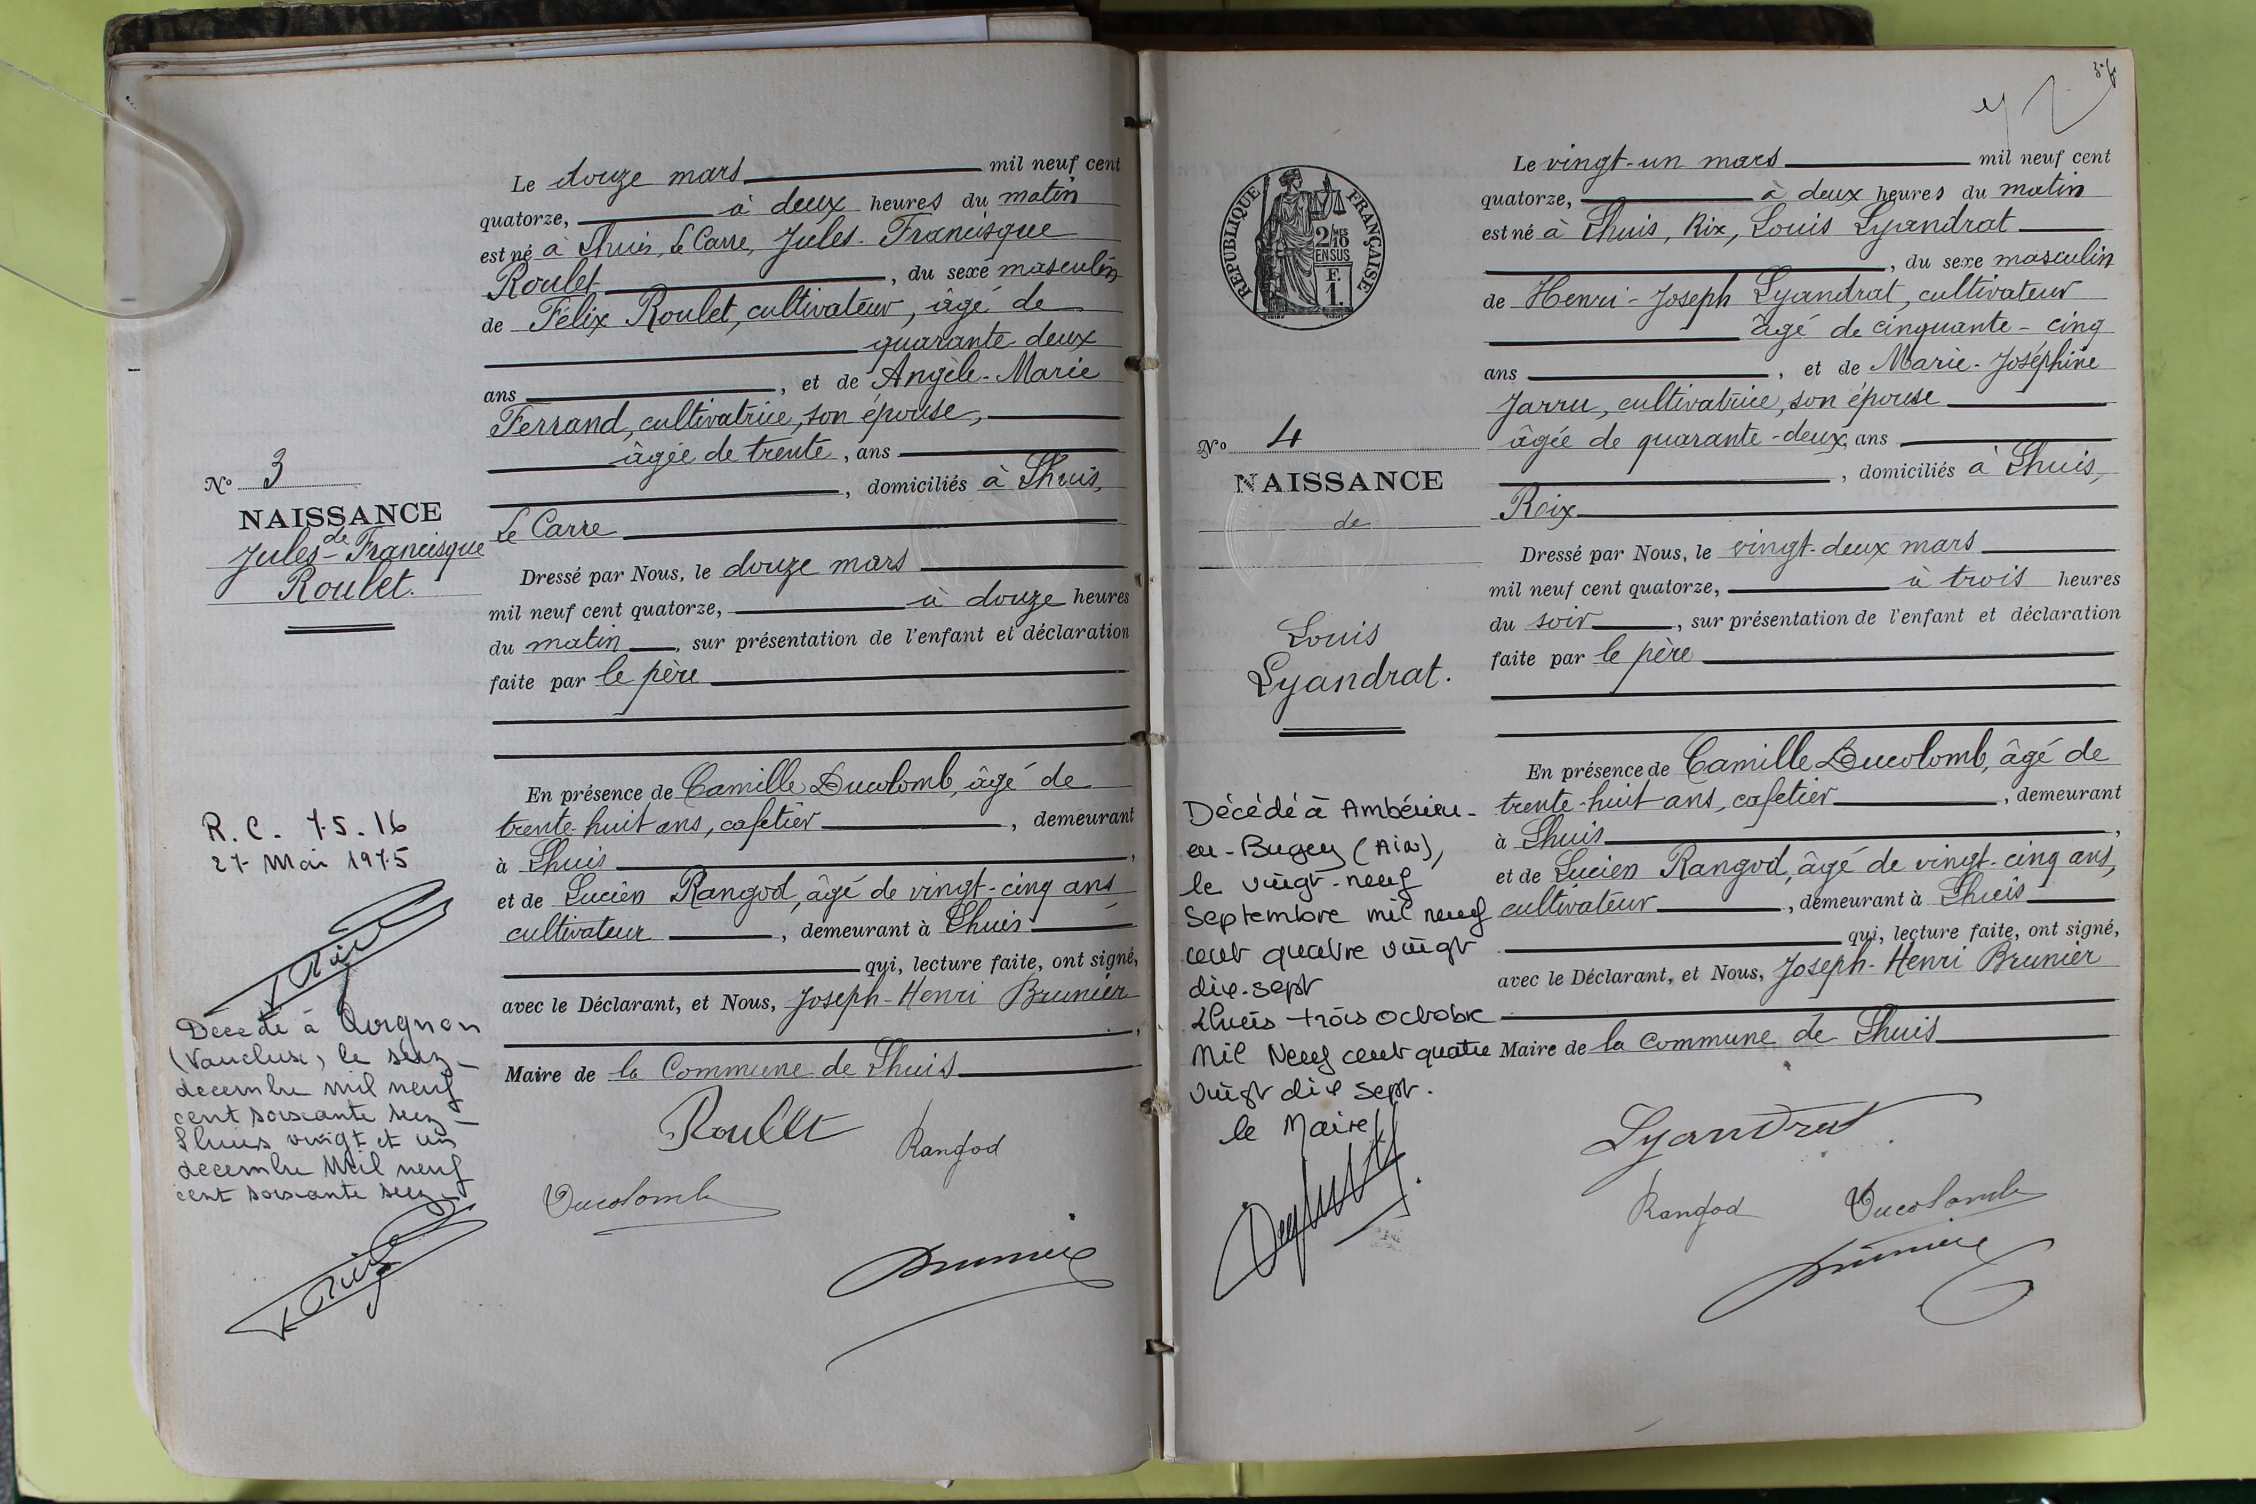 N° 3
NAISSANCE
de
Jules-Francisque
Roulet.
R. C. 75.16
27 Mai 1975
Décédé à Avignon
(Vaucluse) le seize
decembre mil neuf
cent soixante seize
Lhuis vingt et un
decembre Mil neuf
cent soixante seize
Le douze mars mil neuf cent
quatorze, à deux heures du matin
est né à Lhuis, Le Carre, Jules-Francisque
Roulet, du sexe masculin
de Félix Roulet, cultivateur, âgé de
quarante-deux
ans, et de Angèle-Marie
Ferrand, cultivatrice, son épouse,
âgée de trente, ans
, domiciliés à Lhuis,
Le Carre
Dressé par Nous, le douze mars
mil neuf cent quatorze, à douze heures
du matin, sur présentation de l'enfant et déclaration
faite par le père
En présence de Camille Ducolomb, âgé de
trente-huit ans, cafetier, demeurant
à Lhuis,
et de Lucien Rangod, âgé de vingt-cinq ans
cultivateur, demeurant à Lhuis
qui, lecture faite, ont signé,
avec le Déclarant, et Nous, Joseph-Henri Brunier
,
Maire de la Commune de Lhuis
Roulet Rangod
Ducolomb
Brunier
RÉPUBLIQUE FRANÇAISE
2/10MES
EN SUS
F.
1.
N° 4
NAISSANCE
de
Louis
Lyandrat.
Décédé à Ambérieu-
en-Bugey (Ain),
le vingt-neuf
septembre mil neuf
cent quatre vingt
dix-sept
Lhuis trois octobre
Mil Neuf cent quatre
vingt dix sept.
le Maire
Le vingt-un mars mil neuf cent
quatorze, à deux heures du matin
est né à Lhuis, Rix, Louis Lyandrat
, du sexe masculin
de Henri-Joseph Lyandrat, cultivateur
âgé de cinquante-cinq
ans, et de Marie-Joséphine
Jarru, cultivatrice, son épouse
âgée de quarante-deux, ans
, domiciliés à Lhuis,
Rix
Dressé par Nous, le vingt-deux mars
mil neuf cent quatorze, à trois heures
du soir, sur présentation de l'enfant et déclaration
faite par le père
En présence de Camille Ducolomb, âgé de
trente-huit ans, cafetier, demeurant
à Lhuis,
et de Lucien Rangod, âgé de vingt-cinq ans,
cultivateur, demeurant à Lhuis
qui, lecture faite, ont signé,
avec le Déclarant, et Nous, Joseph-Henri Brunier
Maire de la commune de Lhuis
Lyandrat
Rangod Ducolomb
Brunier